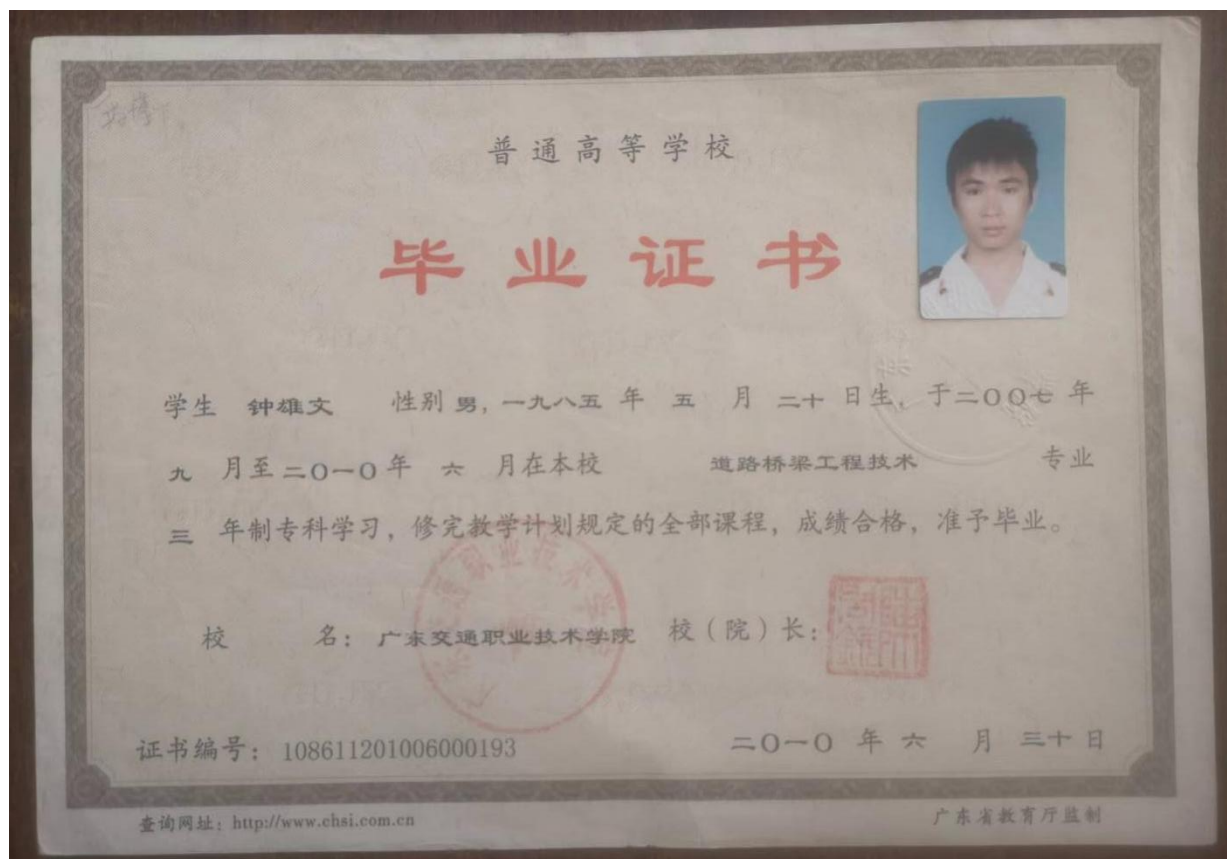 普通高等学校
毕业证书
学生 钟雄文 性别 男, 一九八五 年 五 月 二十 日生, 于二〇〇七 年
九 月至 二〇一〇 年 六 月在本校 道路桥梁工程技术 专业
三 年制专科学习, 修完教学计划规定的全部课程, 成绩合格, 准予毕业。
校 名: 广东交通职业技术学院 校(院)长:
证书编号: 108611201006000193 二〇一〇 年 六 月 三十 日
查询网址: http://www.chsi.com.cn 广东省教育厅监制